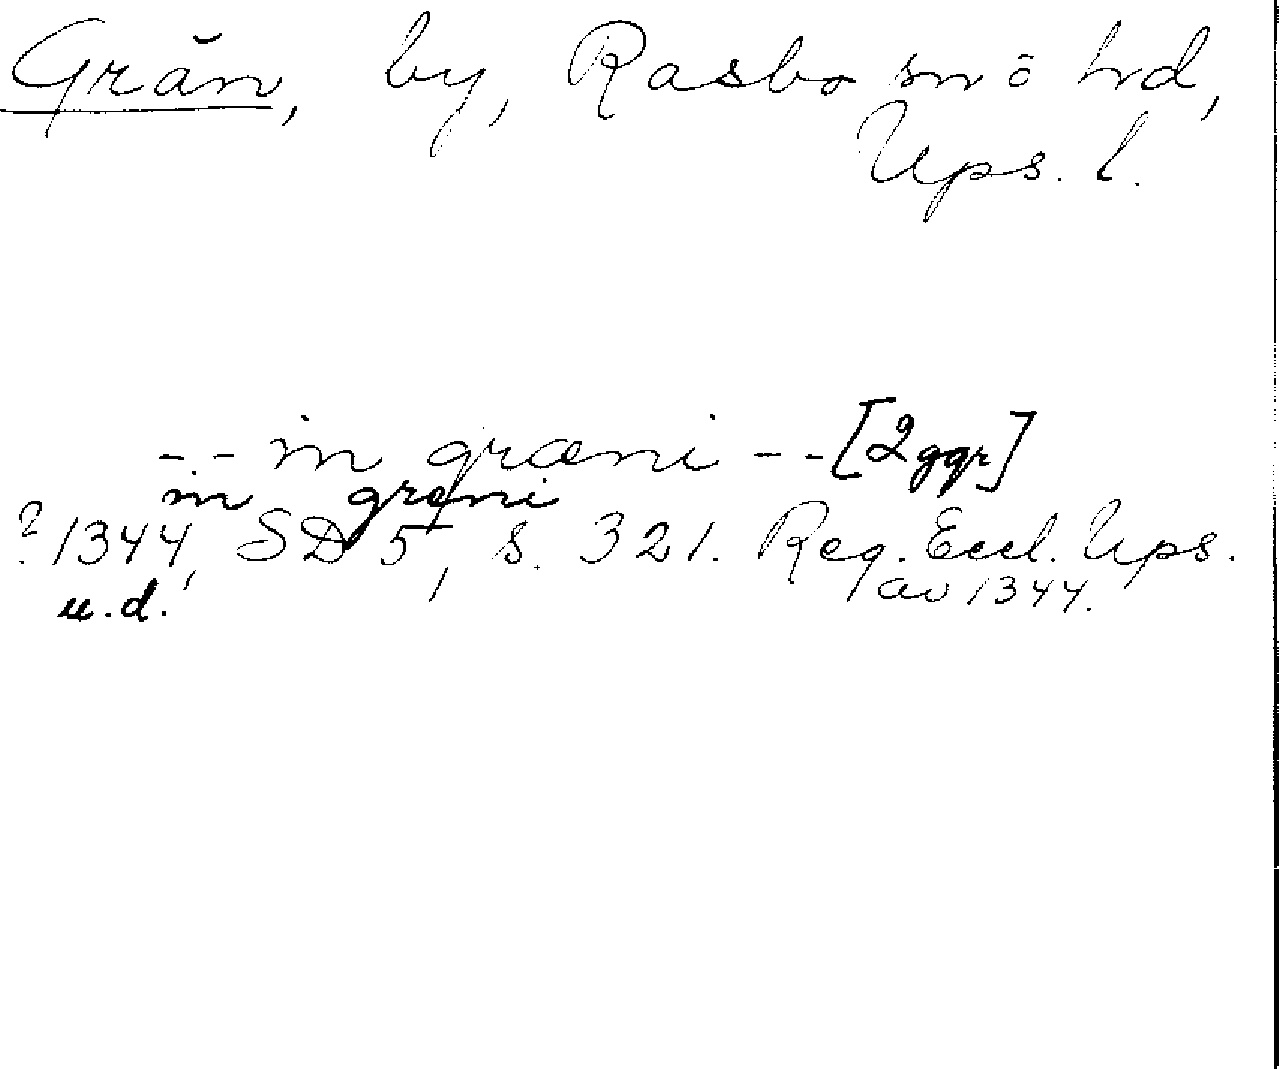 Grän, by, Rasbo sn ō hd,
Ups. l.
-.- in græni - - [2 ggr]
in gręni
? 1344, SD 5, s. 321. Reg. Eccl. Ups.
u.d. av 1344.